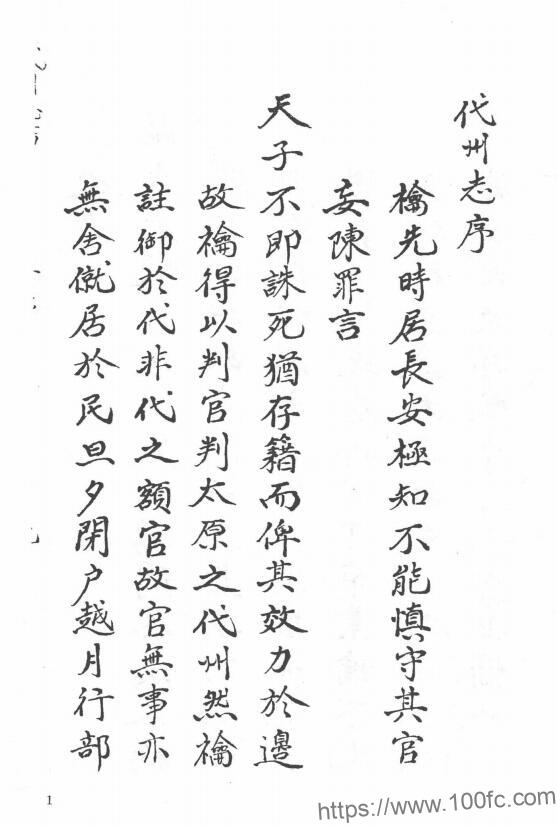 代州志序
檎先時居長安極知不能慎守其官
妄陳罪言
天子不即誅死猶存籍而俾其效力於邊
故檎得以判官判太原之代州然檎
註御於代非代之額官故官無事亦
無舍僦居於民旦夕閉户越月行部
1
https://www.100fc.com